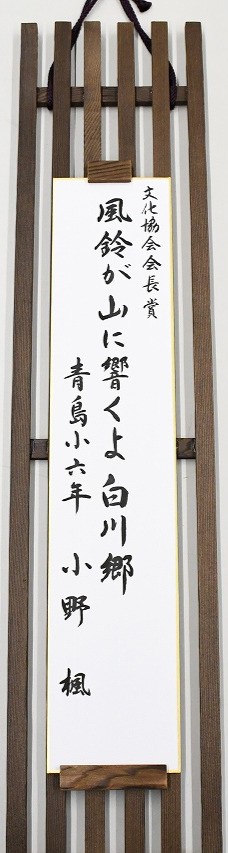 文化協会会長賞
風鈴が山に響くよ白川郷
青島小六年 小野 楓